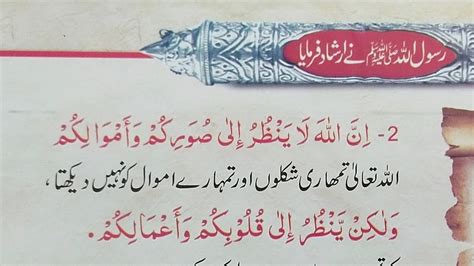 رسول اللہ ﷺ نے ارشاد فرمایا
2- اِنَّ اللّٰهَ لَا يَنْظُرُ اِلٰى صُوَرِكُمْ وَاَمْوَالِكُمْ
اللہ تعالیٰ تمھاری شکلوں اور تمہارے اموال کو نہیں دیکھتا،
وَلٰكِنْ يَّنْظُرُ اِلٰى قُلُوْبِكُمْ وَاَعْمَالِكُمْ.